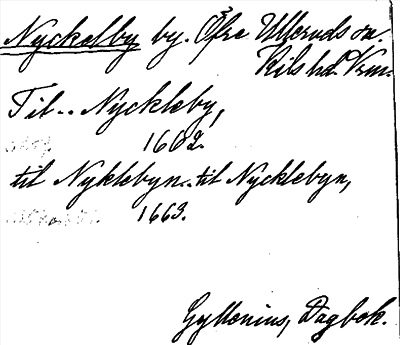 Nyckelby by. Öfre Ulleruds sn.
Kils hd. Vrm.
Til.. Nyckleby,
1602.
til Nyklebyn..til Nycklebyn,
1663.
Gyllenius, Dagbok.